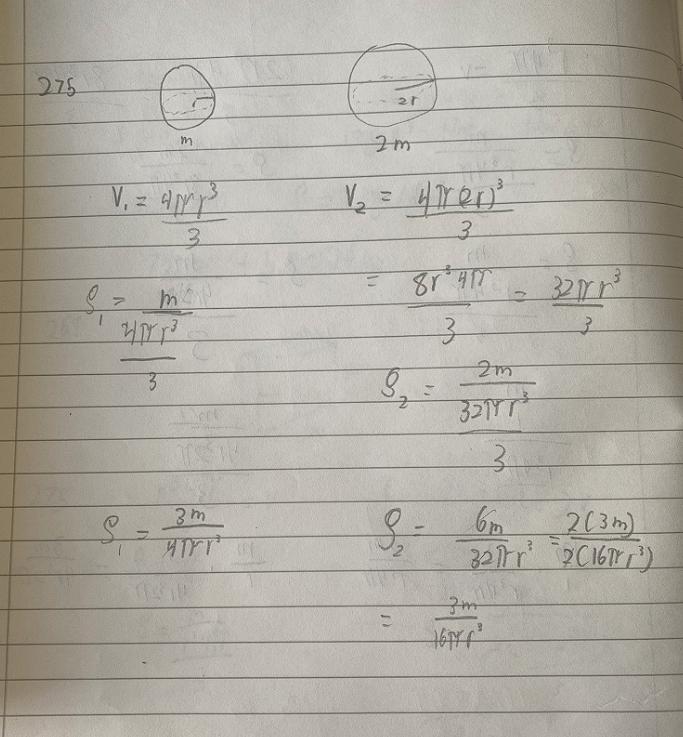 275
r 2r
m 2m
V₁ = 4πr³/3 V₂ = 4π(2r)³/3
= 8r³4π/3 = 32πr³/3
ρ₁ = m/(4πr³/3)
ρ₂ = 2m/(32πr³/3)
ρ₁ = 3m/4πr³ ρ₂ = 6m/32πr³ = 2(3m)/2(16πr³)
= 3m/16πr³